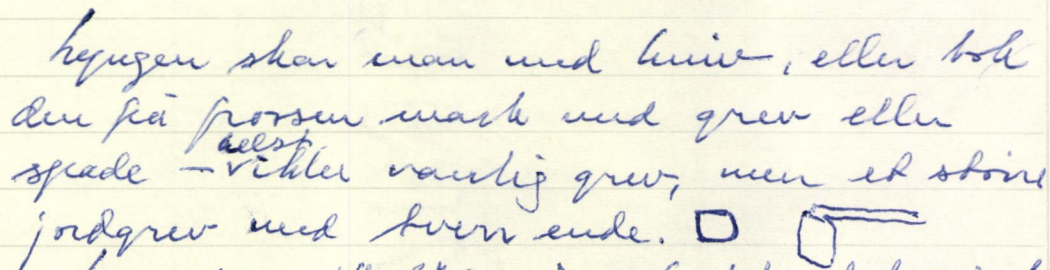 Lyngen skar man med kniv, eller tok
den på frossen mark med grev eller
helst
spade – ikke vanlig grev, men et større
jordgrev med tverr ende.